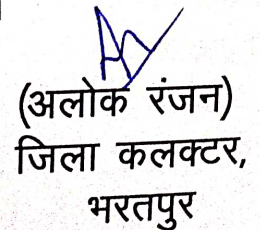 (अलोक रंजन)
जिला कलक्टर,
भरतपुर